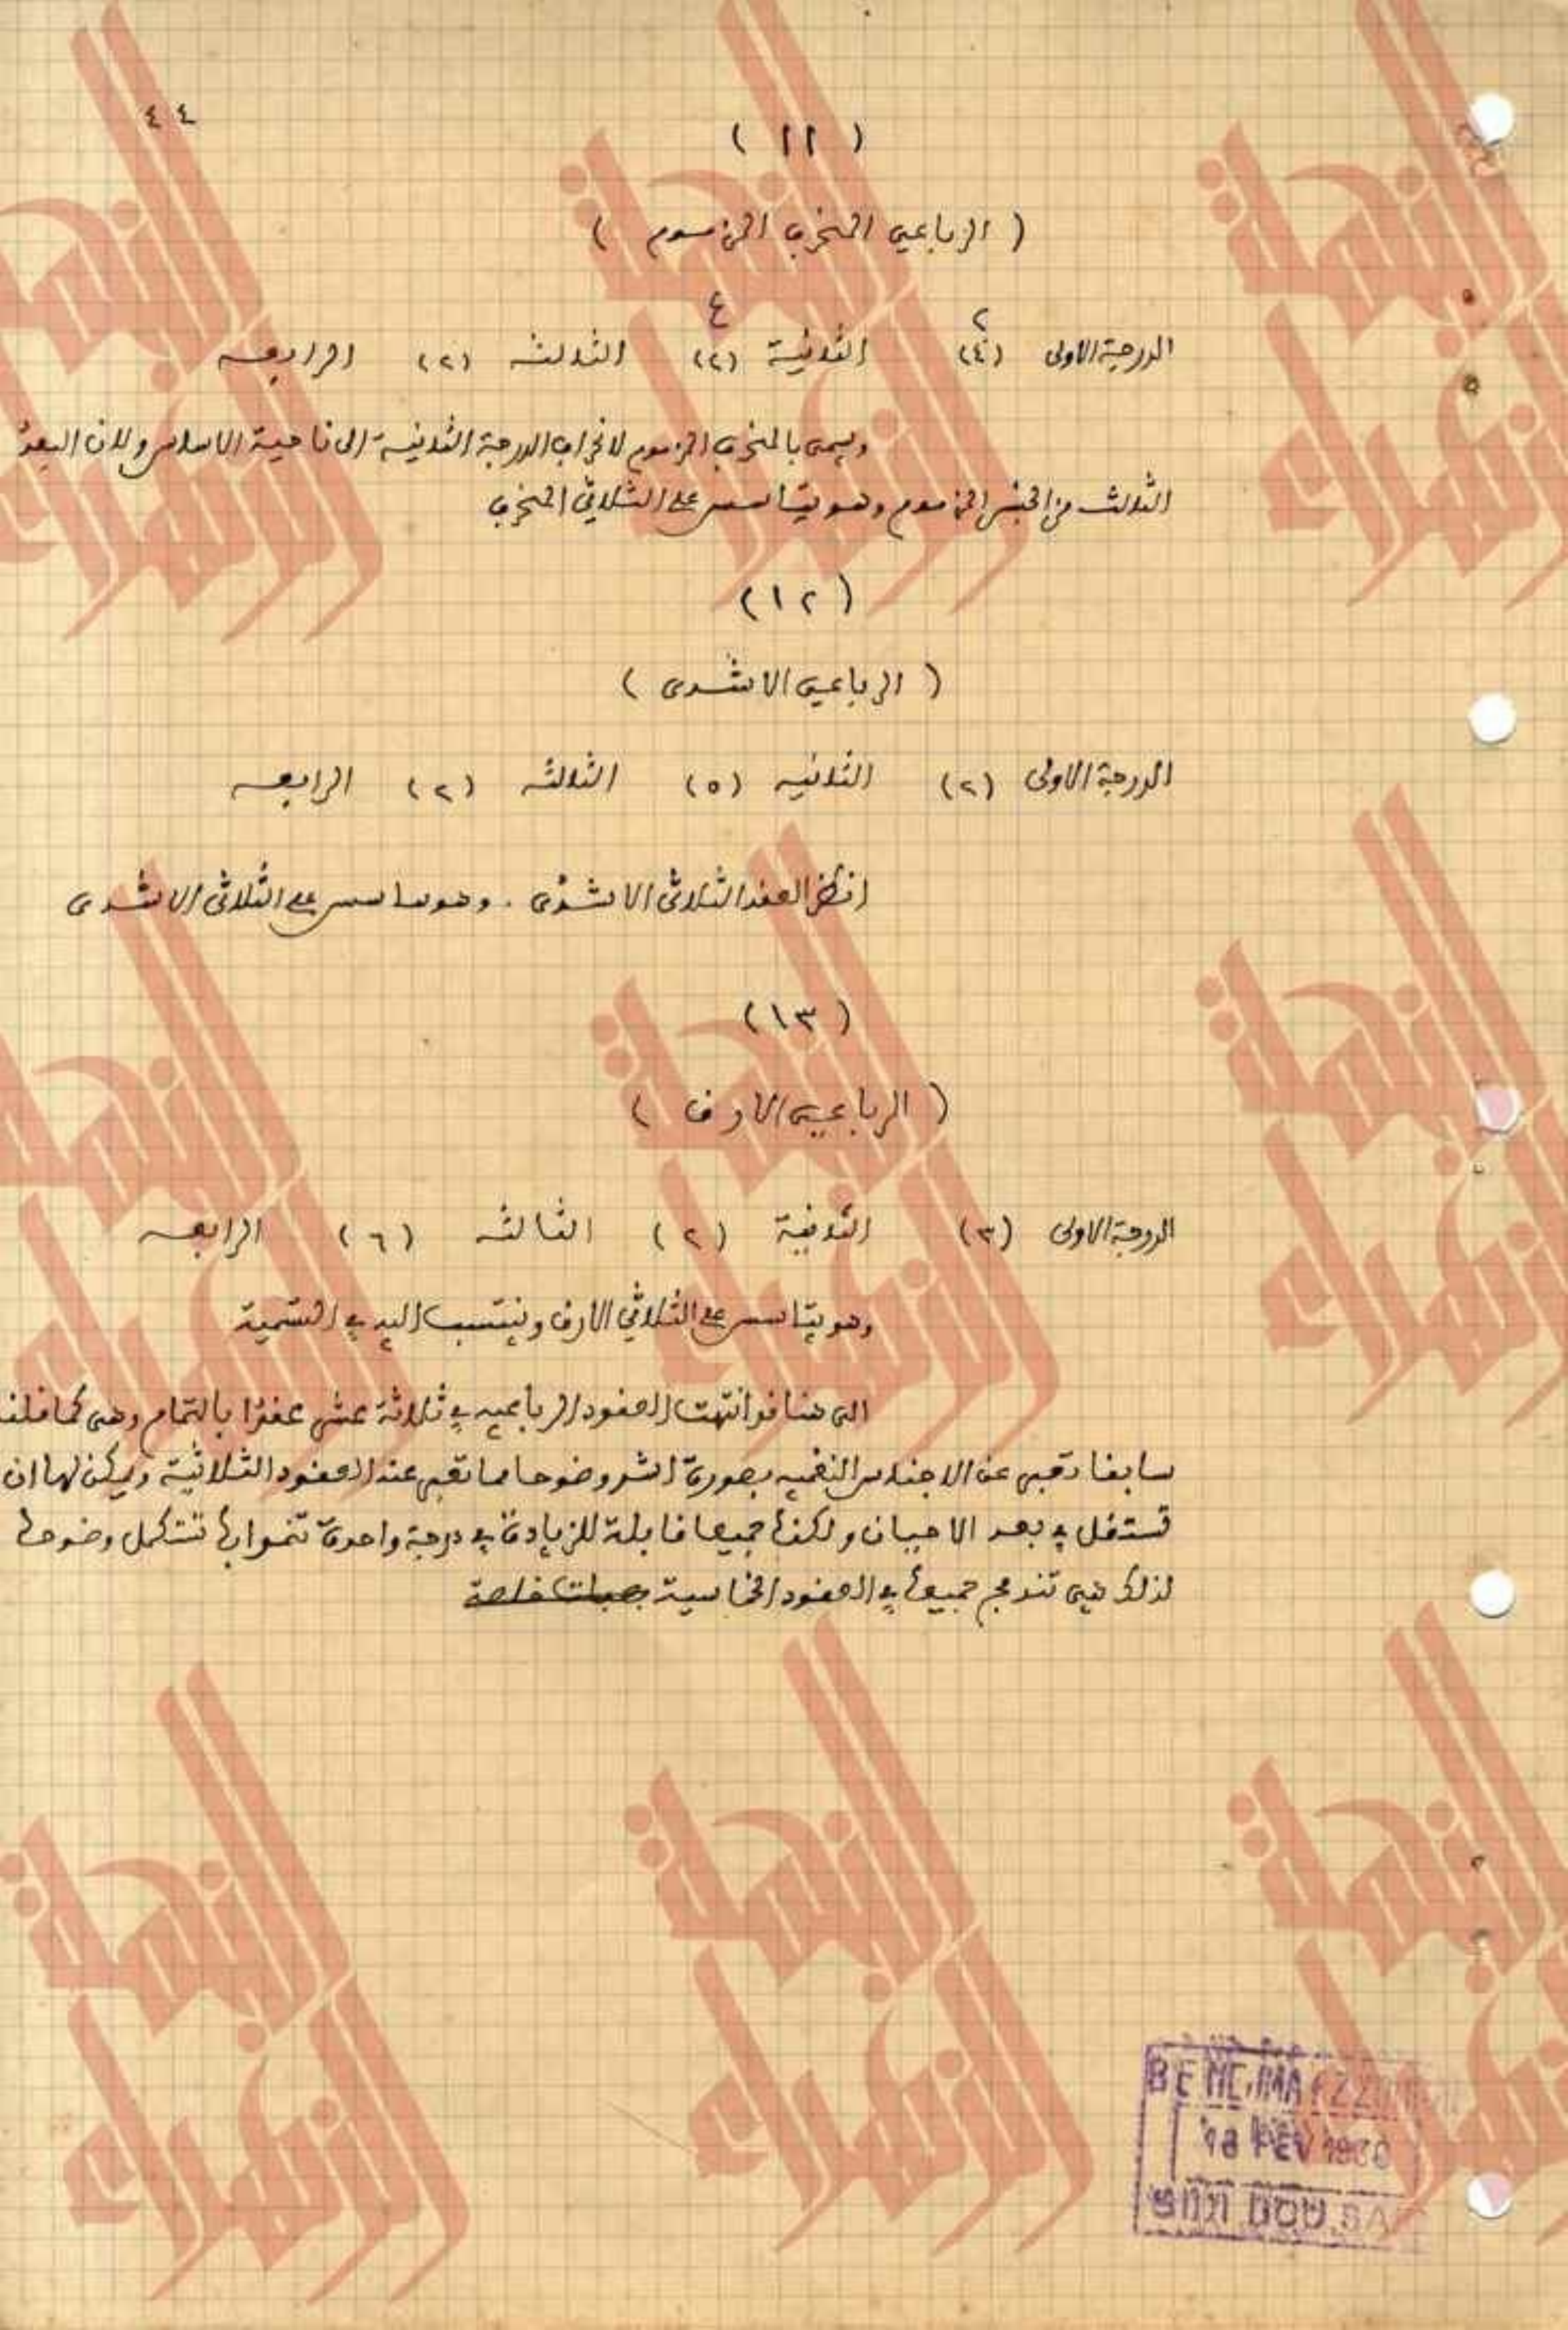 ٤٤
( ١١ )
( الرباعي المنحرف المزموم )
٢ ٤
الدرجة الاولى (٤) الثانية (٢) الثالثة (٢) الرابعه
ويسمى بالمنحرف المزموم لانحراف الدرجة الثانية الى ناحية الاساس ولان البعد
الثالث من الجنس المزموم وهو يتأسس على الثلاثي المنحرف
( ١٢ )
( الرباعي الانشدى )
الدرجة الاولى (٢) الثانيه (٥) الثالثه (٢) الرابعه
انظر العقد الثلاثى الانشدى . وهو مأسس على الثلاثى الانشدى
( ١٣ )
( الرباعي الارف )
الدرجة الاولى (٣) الثانية (٢) الثالثه (٦) الرابعه
وهو يتأسس على الثلاثي الارف وينتسب اليه في التسمية
الى هنا قد انتهت العقود الرباعيه في ثلاثة عشر عقدا بالتمام وهى كما قلنا
سابقا تعبر عن الاجناس النغميه بصورة اشد وضوحا مما تعبر عنه العقود الثلاثية ويمكن لها ان
تستقل في بعد الاحيان ولكنها جميعا قابلة للزيادة في درجة واحدة تنمو بها تستكمل وضوحها
لذلك فهى تندمج جميعها في العقود الخماسية
النحلة
الزهراء
BEN
FEV
SIDI BOU SA